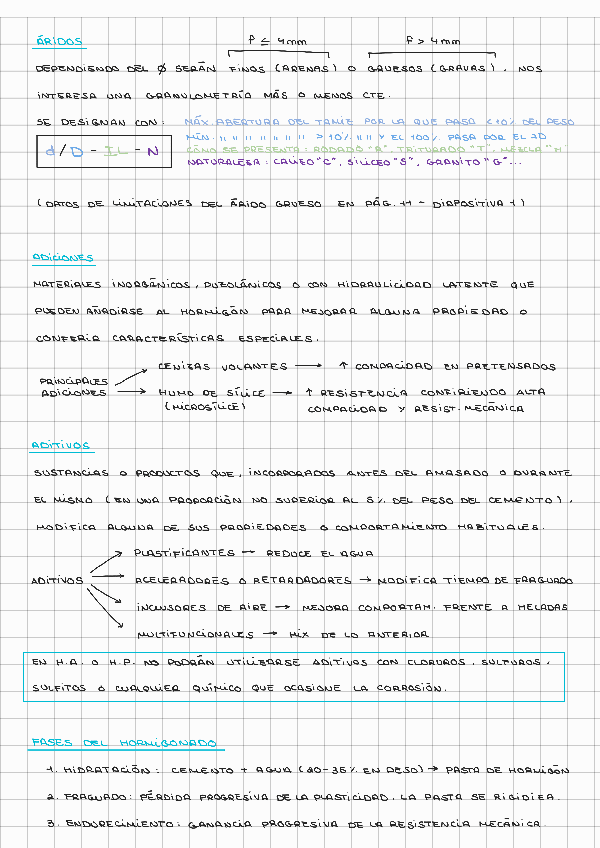 ÁRIDOS
F ≤ 4mm F > 4mm
DEPENDIENDO DEL Ø SERÁN FINOS (ARENAS) O GRUESOS (GRAVAS). NOS
INTERESA UNA GRANULOMETRÍA MÁS O MENOS CTE.
SE DESIGNAN CON: MÁX. APERTURA DEL TAMIZ POR LA QUE PASA <10% DEL PESO
MÍN. " " " " " " " >10% " " Y EL 100% PASA POR EL 2D
d/D - IL - N CÓMO SE PRESENTA: RODADO "R", TRITURADO "T", MEZCLA "M"
NATURALEZA: CALIZO "C", SILÍCEO "S", GRANITO "G"...
(DATOS DE LIMITACIONES DEL ÁRIDO GRUESO EN PÁG. 11 - DIAPOSITIVA 1)
ADICIONES
MATERIALES INORGÁNICOS, PUZOLÁNICOS O CON HIDRAULICIDAD LATENTE QUE
PUEDEN AÑADIRSE AL HORMIGÓN PARA MEJORAR ALGUNA PROPIEDAD O
CONFERIR CARACTERÍSTICAS ESPECIALES.
CENIZAS VOLANTES → ↑ COMPACIDAD EN PRETENSADOS
PRINCIPALES
ADICIONES → HUMO DE SÍLICE → ↑ RESISTENCIA CONFIRIENDO ALTA
(MICROSÍLICE) COMPACIDAD Y RESIST. MECÁNICA
ADITIVOS
SUSTANCIAS O PRODUCTOS QUE, INCORPORADOS ANTES DEL AMASADO O DURANTE
EL MISMO (EN UNA PROPORCIÓN NO SUPERIOR AL 5% DEL PESO DEL CEMENTO),
MODIFICA ALGUNA DE SUS PROPIEDADES O COMPORTAMIENTO HABITUALES.
PLASTIFICANTES → REDUCE EL AGUA
ADITIVOS → ACELERADORES O RETARDADORES → MODIFICA TIEMPO DE FRAGUADO
INCLUSORES DE AIRE → MEJORA COMPORTAM. FRENTE A HELADAS
MULTIFUNCIONALES → MIX DE LO ANTERIOR
EN H.A. O H.P. NO PODRÁN UTILIZARSE ADITIVOS CON CLORUROS, SULFUROS,
SULFITOS O CUALQUIER QUÍMICO QUE OCASIONE LA CORROSIÓN.
FASES DEL HORMIGONADO
1. HIDRATACIÓN: CEMENTO + AGUA (20-35% EN PESO) → PASTA DE HORMIGÓN
2. FRAGUADO: PÉRDIDA PROGRESIVA DE LA PLASTICIDAD. LA PASTA SE RIGIDIZA.
3. ENDURECIMIENTO: GANANCIA PROGRESIVA DE LA RESISTENCIA MECÁNICA.